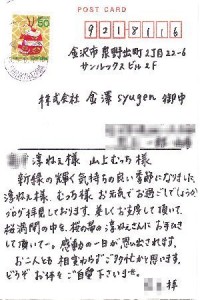 POST CARD
50
9218116
金沢市泉野出町2丁目22-6
サンルックスビル2F
株式会社 金澤syugen 御中
淳ねぇ様 山上むっち様
新緑の輝く気持ちの良い季節になりました
淳ねぇ様、むっち様 お元気でお過ごしでしょうか
ブログ拝見しております。楽しくお支度して頂いて、
桜満開の中を、桜の帯の淳ねぇさんにお手引き
して頂いて…。感動の一日が思い出されます。
お二人とも相変わらずご多忙かと思います。
どうぞお体をご自愛下さいませ。